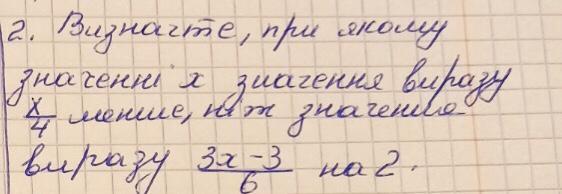 2. Визначте, при якому
значенні x значення виразу
x/4 менше, ніж значення
виразу 3x-3/6 на 2.